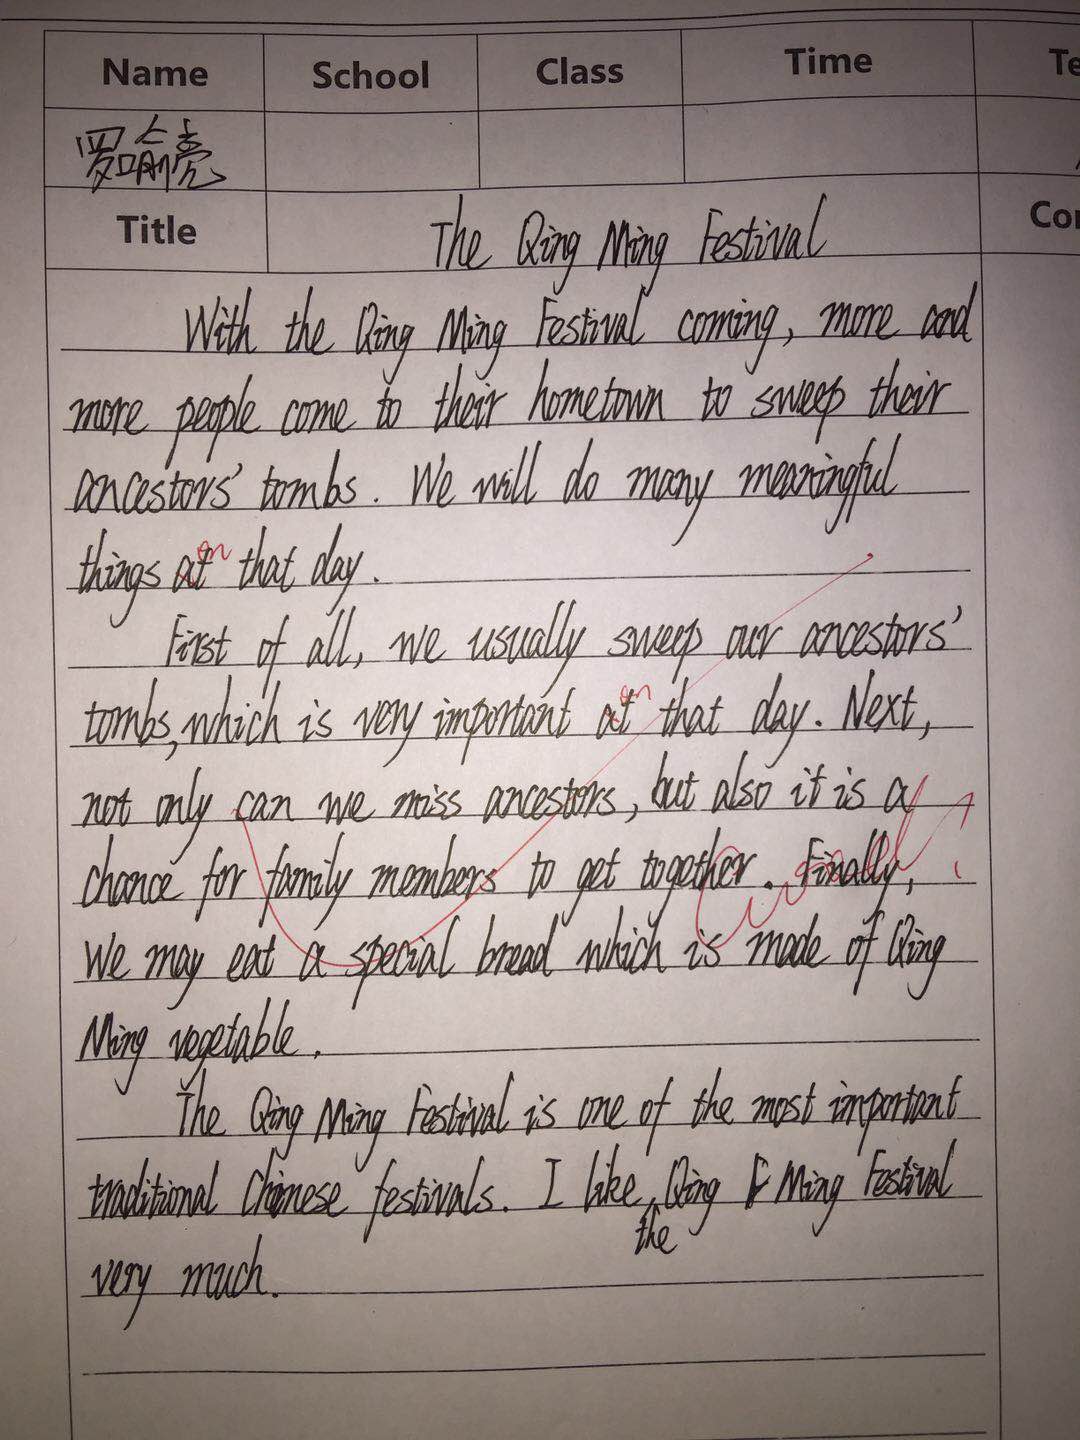 Name School Class Time Te
罗喻亮
Title The Qing Ming Festival Co
With the Qing Ming Festival coming, more and
more people come to their hometown to sweep their
ancestors' tombs. We will do many meaningful
things at on that day.
First of all, we usually sweep our ancestors'
tombs, which is very important at on that day. Next,
not only can we miss ancestors, but also it is a
chance for family members to get together. Finally,
We may eat a special bread which is made of Qing
Ming vegetable.
The Qing Ming Festival is one of the most important
traditional Chinese festivals. I like the Qing Ming Festival
very much.